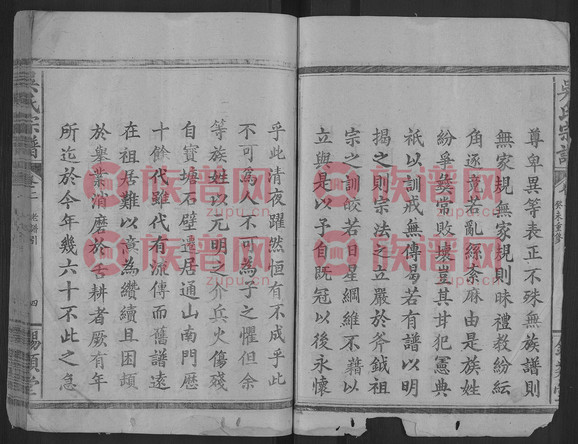 尊卑異等表正不殊無族譜則
無家規無家規則昧禮教紛紜
角逐竟若亂絲紊麻由是族姓
紛爭彞常敗壞豈其甘犯憲典
祇以訓戒無傳曷若有譜以明
揭之則宗法之立嚴於斧鉞祖
宗之訓皎若日星綱維不藉以
立與是以子自既冠以後永懷
乎此清夜躍然恒有不成乎此
不可為人不可為子之懼但余
等族姓以元明之介兵火傷殘
自寶塘石壁遷居通山南門歷
十餘代雖代有流傳而舊譜遠
在祖居難以資為纘續且困頓
於舉業消磨於舌耕者厥有年
所迄於今年幾六十不此之急
吳氏宗譜
卷二
老譜引
四
賜顏堂
吳氏宗譜
癸未重修
族譜网
zupu.cn